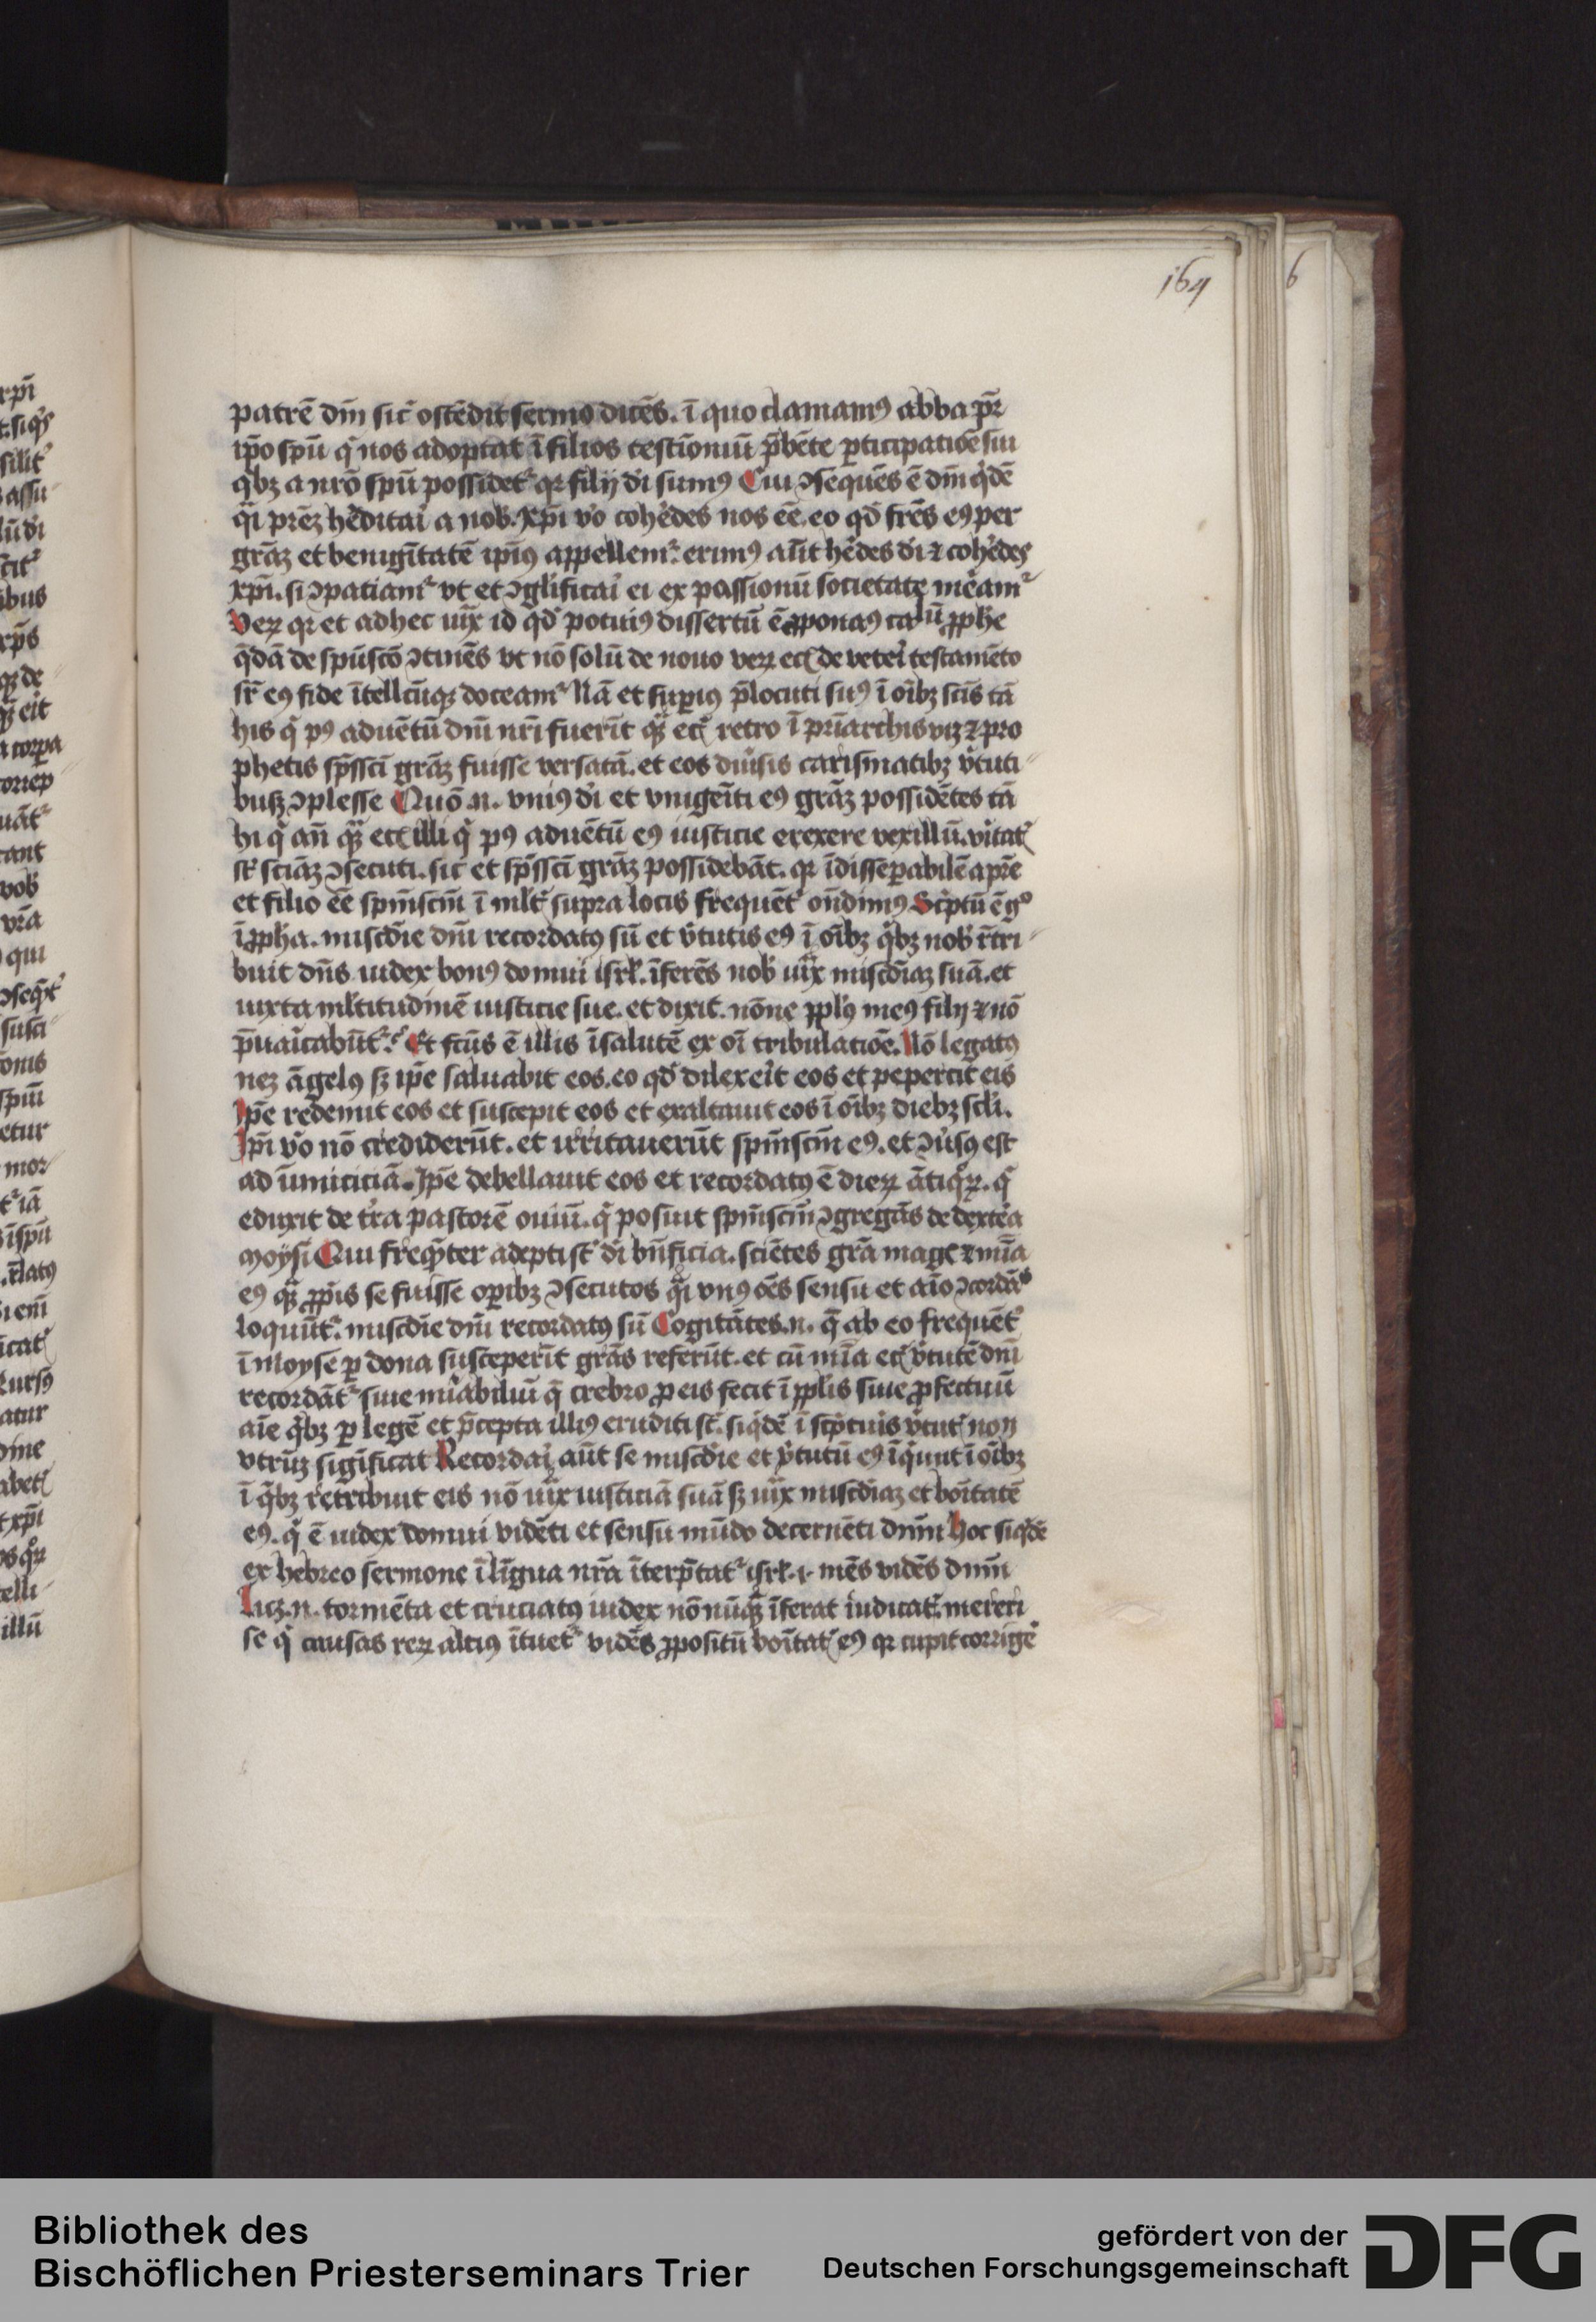 164
6
patrē dm̄ sic̄ ostēdit sermo dicēs. ī quo clamamꝰ abba pr̄
ip̄o spū q̇ nos adoptat ī filios testīoniū p̄bēte ꝑticipatiōe sui
q̇bꝫ a nr̄o spū possidet᷑ qꝛ filij dī sumꝰ Cui ↄsequēs ē dm̄ q̇dē
q̇i pr̄ēꝫ h̓editai̓ a nob̓. xp̄i v̓o coh̓edes nos eē. eo qd̓ fr̄ēs eꝰ per
gr̄āꝫ et benignitatē ip̄iꝰ appellem᷑. erimꝰ aūt h̓edes dī ⁊ coh̓edes
xp̄i. si ↄpatiam᷑ vt et ↄgl̓ificai̓ ei ex passionū societate mēam᷑
Veꝝ qꝛ et adhec iux̄ id qd̓ potuiꝰ dissertū ē ꝓponaꝰ ꝓph̄e
q̄dā de spūscō ↄtinēs vt nō solū de nouo veꝝ ec̄ de vetei̓ testamēto
sr̄ eꝰ fide ītell̄cūqꝫ doceam᷑ Nā et suꝑiꝰ p̄locuti suꝰ ī oībꝫ scīs tā
his q̇ pꝰ aduētū dm̄ nr̄i fuerīt qꝫ̄ ec̄ retro ī pr̄iarchis vꝫ ⁊ pro
phetis sp̄ssc̄i gr̄āꝫ fuisse versatā. et eos diu̓sis carismatibꝫ v̓tuti
busqꝫ ↄplesse Quō .n. vniꝰ dī et vnigeīti eꝰ gr̄āꝫ possidētes tā
hi q̇ an̄ qꝫ̄ ec̄ illi q̇ pꝰ aduētū eꝰ iusticie erexere vexillū. v̓itat᷑
st̄ sciāꝫ ↄsecuti. sic̄ et sp̄ssc̄i gr̄āꝫ possidebāt. qꝛ īdisseꝑabilē a pr̄e
et filio eē spm̄scm̄ ī mlt̄ supra locis frequēt᷑ on̄dimꝰ Sc̓ptū ē g°
ī ꝓph̄a. misc̄die dn̄i recordatꝰ sū et v̓tutis eꝰ ī oībꝫ q̇bꝫ nob̓ r̄tri
buit dn̄s iudex bonꝰ domui isrl̓. īferēs nob̓ iux̄ misc̄diaꝫ suā. et
iuxta ml̓titudinē iusticie sue. et dixit. nōne ppl̓ꝰ meꝰ filij ⁊ nō
p̄uai̓cabūt᷑. Et fc̄us ē illis ī salutē ex oī tribulatiōe. Nō legatꝰ
neꝫ āgelꝰ sꝫ ip̄e saluabit eos. eo qd̓ dilexei̓t eos et pepercit eis
Ip̄e redemit eos et suscepit eos et exaltauit eos ī oībꝫ diebꝫ scl̓i.
Ip̄i v̓o nō crediderūt. et irritauerūt spm̄scm̄ eꝰ. et ↄu̓sꝰ est
ad īimiciciā. Ip̄e debellauit eos et recordatꝰ ē dieꝝ ātiq̊ꝝ. q̇
eduxit de tr̓a pastorē ouiū. q̇ posuit spm̄scm̄ ↄgregās de dextera
Moysi Qui freq̄ter adepti st̄ dī bn̄ficia. sciētes gr̄a mage ⁊ mīa
eꝰ qꝫ̄ ꝓp̄is se fuisse oꝑibꝫ ↄsecutos q̇i vnꝰ oēs sensu et aīo ↄcordās
loquūt᷑. misc̄die dn̄i recordatꝰ sū Cogitātes .n. q̄ ab eo frequēt᷑
ī Moyse ꝑ dona susceperīt gr̄ās referūt. et cū mīa ec̄ v̓tutē dn̄i
recordāt᷑ siue mi̓abiliū q̄ crebro ꝓ eis fecit ī ppl̓is siue ꝓfectuū
aīe q̇bꝫ ꝑ legē et p̄cepta illiꝰ eruditi st̄. siq̇dē ī sc̓ptuis v̓tut᷑ non
vtrūꝫ sigīficat Recordai̓ aūt se misc̄die et v̓tutū eꝰ īq̇unt ī oībꝫ
ī q̇bꝫ retribuit eis nō iux̄ iusticiā suā sꝫ iux̄ misc̄diaꝫ et boītatē
eꝰ. q̇ ē iudex domui vidēti et sensu mūdo decernēti dn̄m Hoc siq̇dē
ex hebreo sermone ī līgua nr̄a īterp̄tat᷑ isrl̓ .i. mēs vidēs dnm̄
Licꝫ .n. tormēta et cruciatꝰ iudex nō nūqꝫ̄ īferat iudicat᷑ mereri
se q̇ causas reꝝ altiꝰ ītuet᷑ vidēs ꝓpositū boītat᷑ eꝰ qꝛ cupit corrige̓
Bibliothek des
Bischöflichen Priesterseminars Trier
gefördert von der
Deutschen Forschungsgemeinschaft
DFG